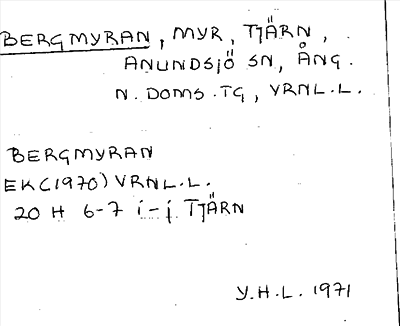 BERGMYRAN, MYR, TJÄRN,
ANUNDSJÖ SN, ÅNG.
N. DOMS. TG, VRNL.L.
BERGMYRAN
EK(1970) VRNL.L.
20 H 6-7 i-j TJÄRN
Y.H.L. 1971